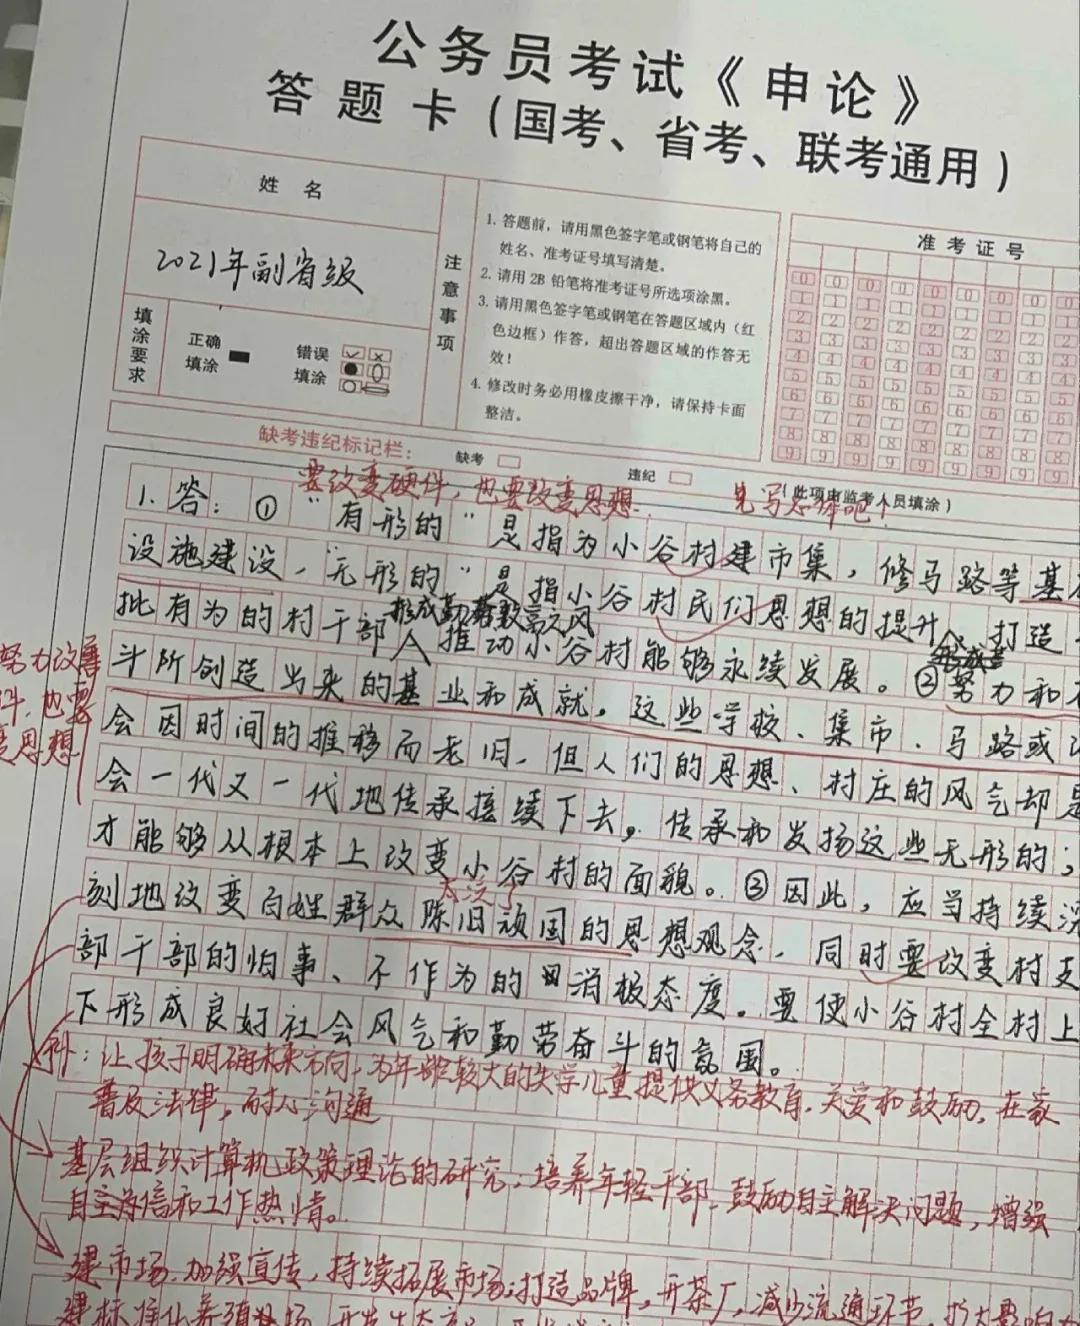 公务员考试《申论》
答题卡（国考、省考、联考通用）
姓 名
2021年副省级
填涂要求
正确填涂
错误填涂
注意事项
1. 答题前，请用黑色签字笔或钢笔将自己的
姓名、准考证号填写清楚。
2. 请用 2B 铅笔将准考证号所选项涂黑。
3. 请用黑色签字笔或钢笔在答题区域内（红
色边框）作答，超出答题区域的作答无
效！
4. 修改时务必用橡皮擦干净，请保持卡面
整洁。
准考证号
0 0 0 0 0 0 0 0 0
1 1 1 1 1 1 1 1 1
2 2 2 2 2 2 2 2 2
3 3 3 3 3 3 3 3 3
4 4 4 4 4 4 4 4 4
5 5 5 5 5 5 5 5 5
6 6 6 6 6 6 6 6 6
7 7 7 7 7 7 7 7 7
8 8 8 8 8 8 8 8 8
9 9 9 9 9 9 9 9 9
缺考违纪标记栏：
缺考
违纪
（此项由监考人员填涂）
要改变硬件，也要改变思想
先写
1. 答：①“有形的”是指为小谷村建市集，修马路等基
设施建设，“无形的”是指小谷村民们思想的提升，打造
形成勤劳致富之风
批有为的村干部人推动小谷村能够永续发展。②努力和
努力改善
件，也要
变思想
斗所创造出来的基业和成就。这些学校、集市、马路或
会因时间的推移而老旧，但人们的思想、村庄的风气却是
会一代又一代地传承接续下去。传承和发扬这些无形的；
才能够从根本上改变小谷村的面貌。③因此，应当持续深
刻地改变百姓群众陈旧顽固的思想观念，同时要改变村支
部干部的怕事、不作为的消极态度。要使小谷村全村上
下形成良好社会风气和勤劳奋斗的氛围。
补：让孩子明确未来方向，为年龄较大的失学儿童提供义务教育，关爱和鼓励，在家
普及法律，耐心沟通
基层组织计算机政策理论的研究；培养年轻干部，鼓励自主解决问题，增强
自主信和工作热情。
建市场，加强宣传，持续拓展市场；打造品牌，开茶厂，减少流通环节，扩大影响
建标准化养殖场，开发生态